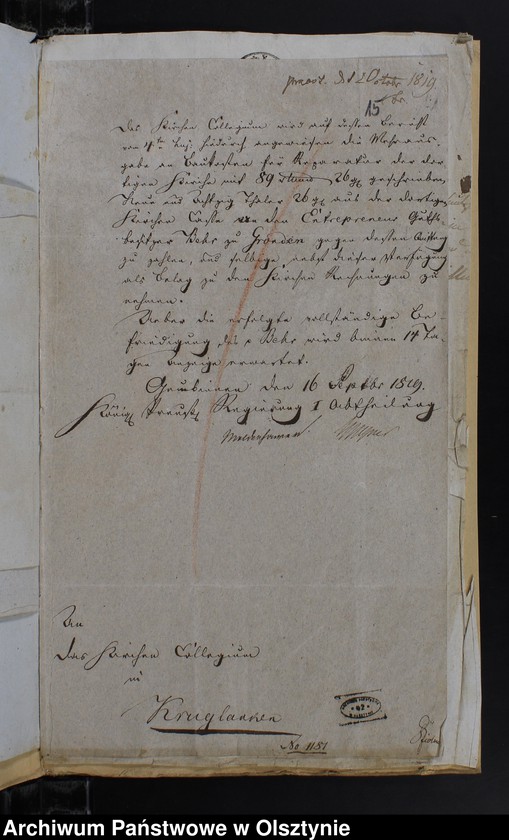 praes. d 12 October 1819
15
Das Kirchen Collegium wird auf dessen Bericht
vom 4ten huj. hiedurch angewiesen die Mehraus-
gabe an Baukosten für Reparatur der dor-
tigen Kirche mit 89 26 geschrieben
Neun und Achtzig Thaler 26 aus der dortigen
Kirchen Casse an den Entrepreneur Guths-
besitzer Behr zu Gronden gegen dessen Quittung
zu zahlen, und selbige nebst dieser Verfügung
als Belag zu den Kirchen Rechnungen zu
nehmen.
Ueber die erfolgte vollständige Be-
friedigung des Behr wird binnen 14 Ta-
gen Anzeige erwartet.
Gumbinnen den 16 Septbr 1819.
Königl Preuss Regierung I Abtheilung
An
das Kirchen Collegium
in
Kruglanken
No 1151
Archiwum Państwowe w Olsztynie